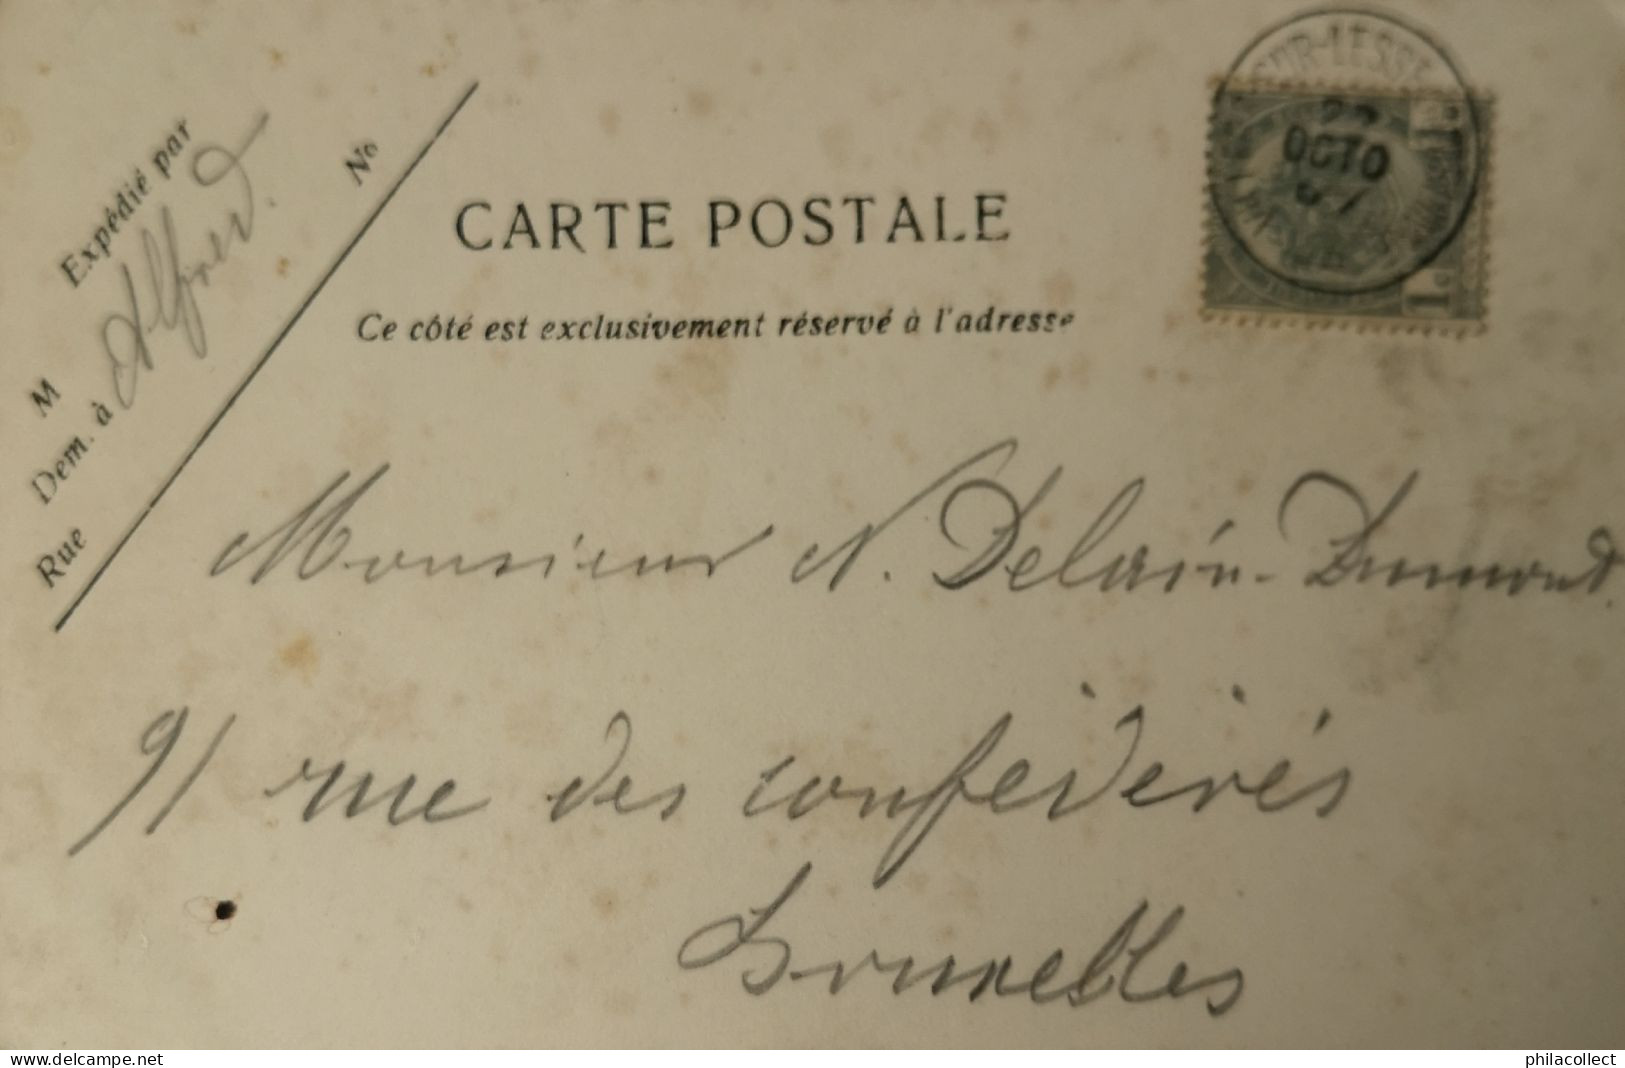 Expédié par
Alfred.
No
M
Dem. à
Rue
CARTE POSTALE
Ce côté est exclusivement réservé à l'adresse
SUR-LESSE
22
OCTO
07
Monsieur N. Delain-Dumont.
91 rue des confédérés
Bruxelles
www.delcampe.net
philacollect